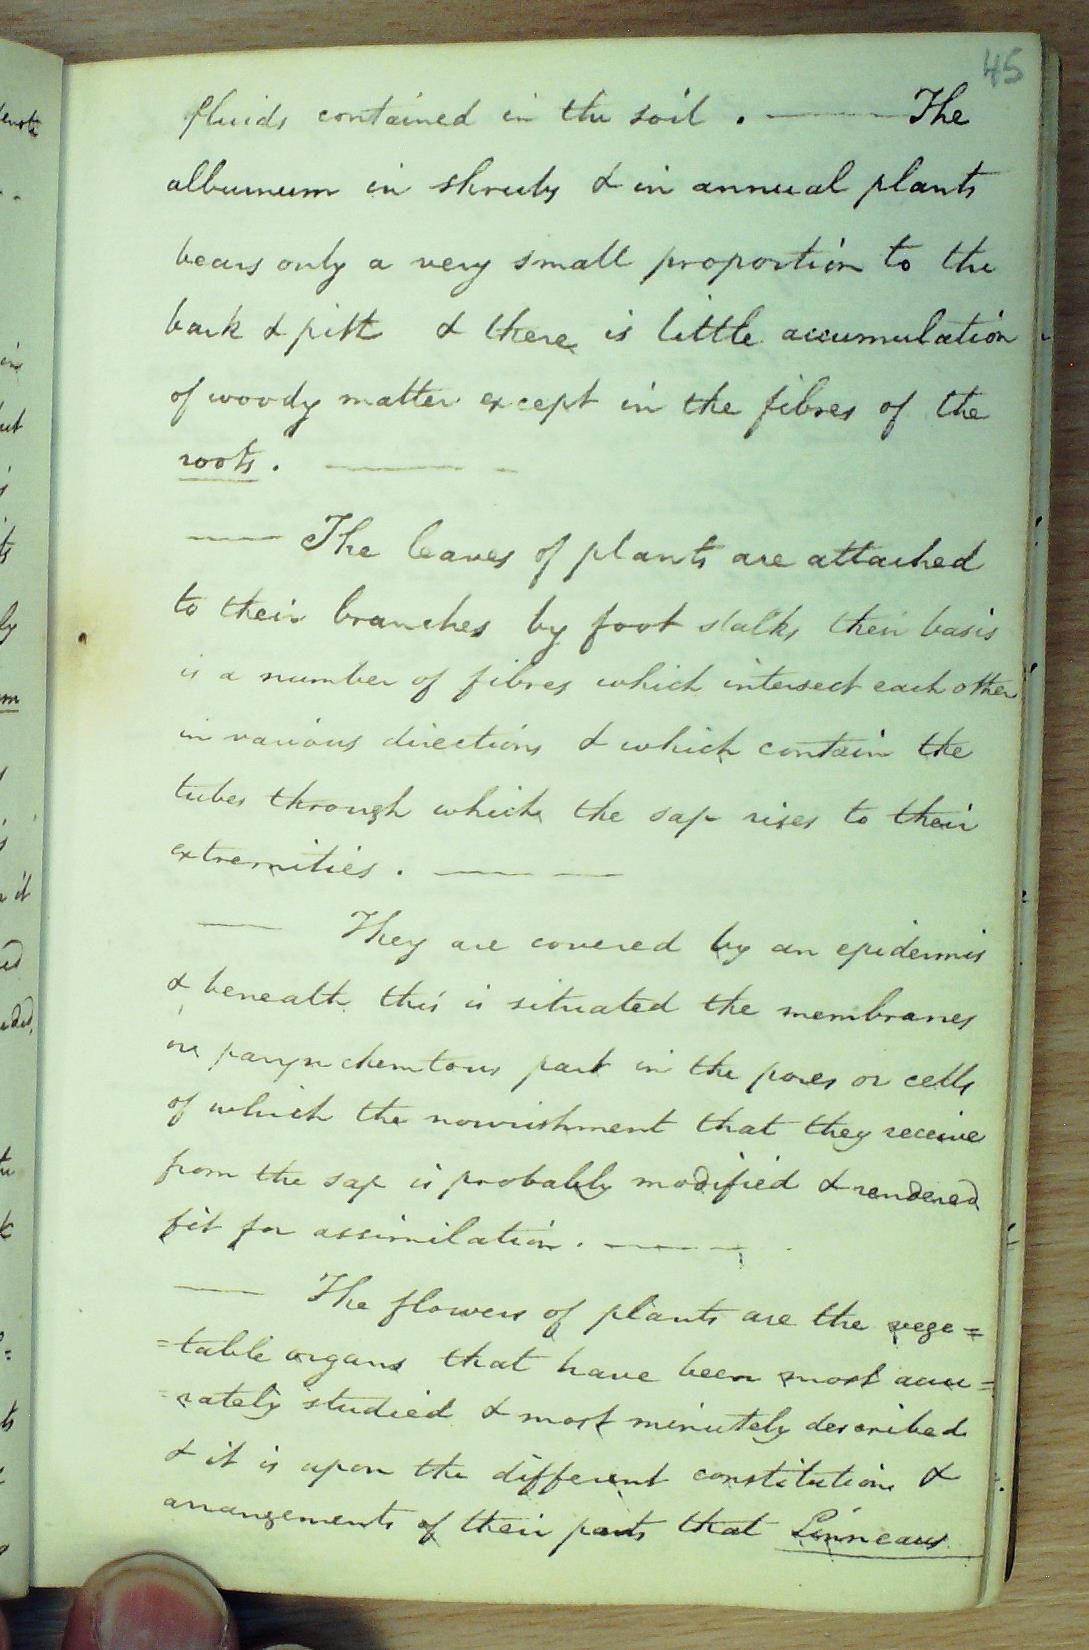 45
fluids contained in the soil . —— The
alburnum in shrubs & in annual plants
bears only a very small proportion to the
bark & pith & there is little accumulation
of woody matter except in the fibres of the
roots . —— -
—— The leaves of plants are attached
to their branches by foot stalks their basis
is a number of fibres which intersect each other
in various directions & which contain the
tubes through which the sap rises to their
extremities . —— ——
—— They are covered by an epidermis
& beneath this is situated the membranes
or parynchemtous part in the pores or cells
of which the nourishment that they receive
from the sap is probably modified & rendered
fit for assimilation . ——
—— The flowers of plants are the vege=
=table organs that have been most accu=
=rately studied & most minutely described
& it is upon the different constitution &
arrangements of their parts that Linneaus